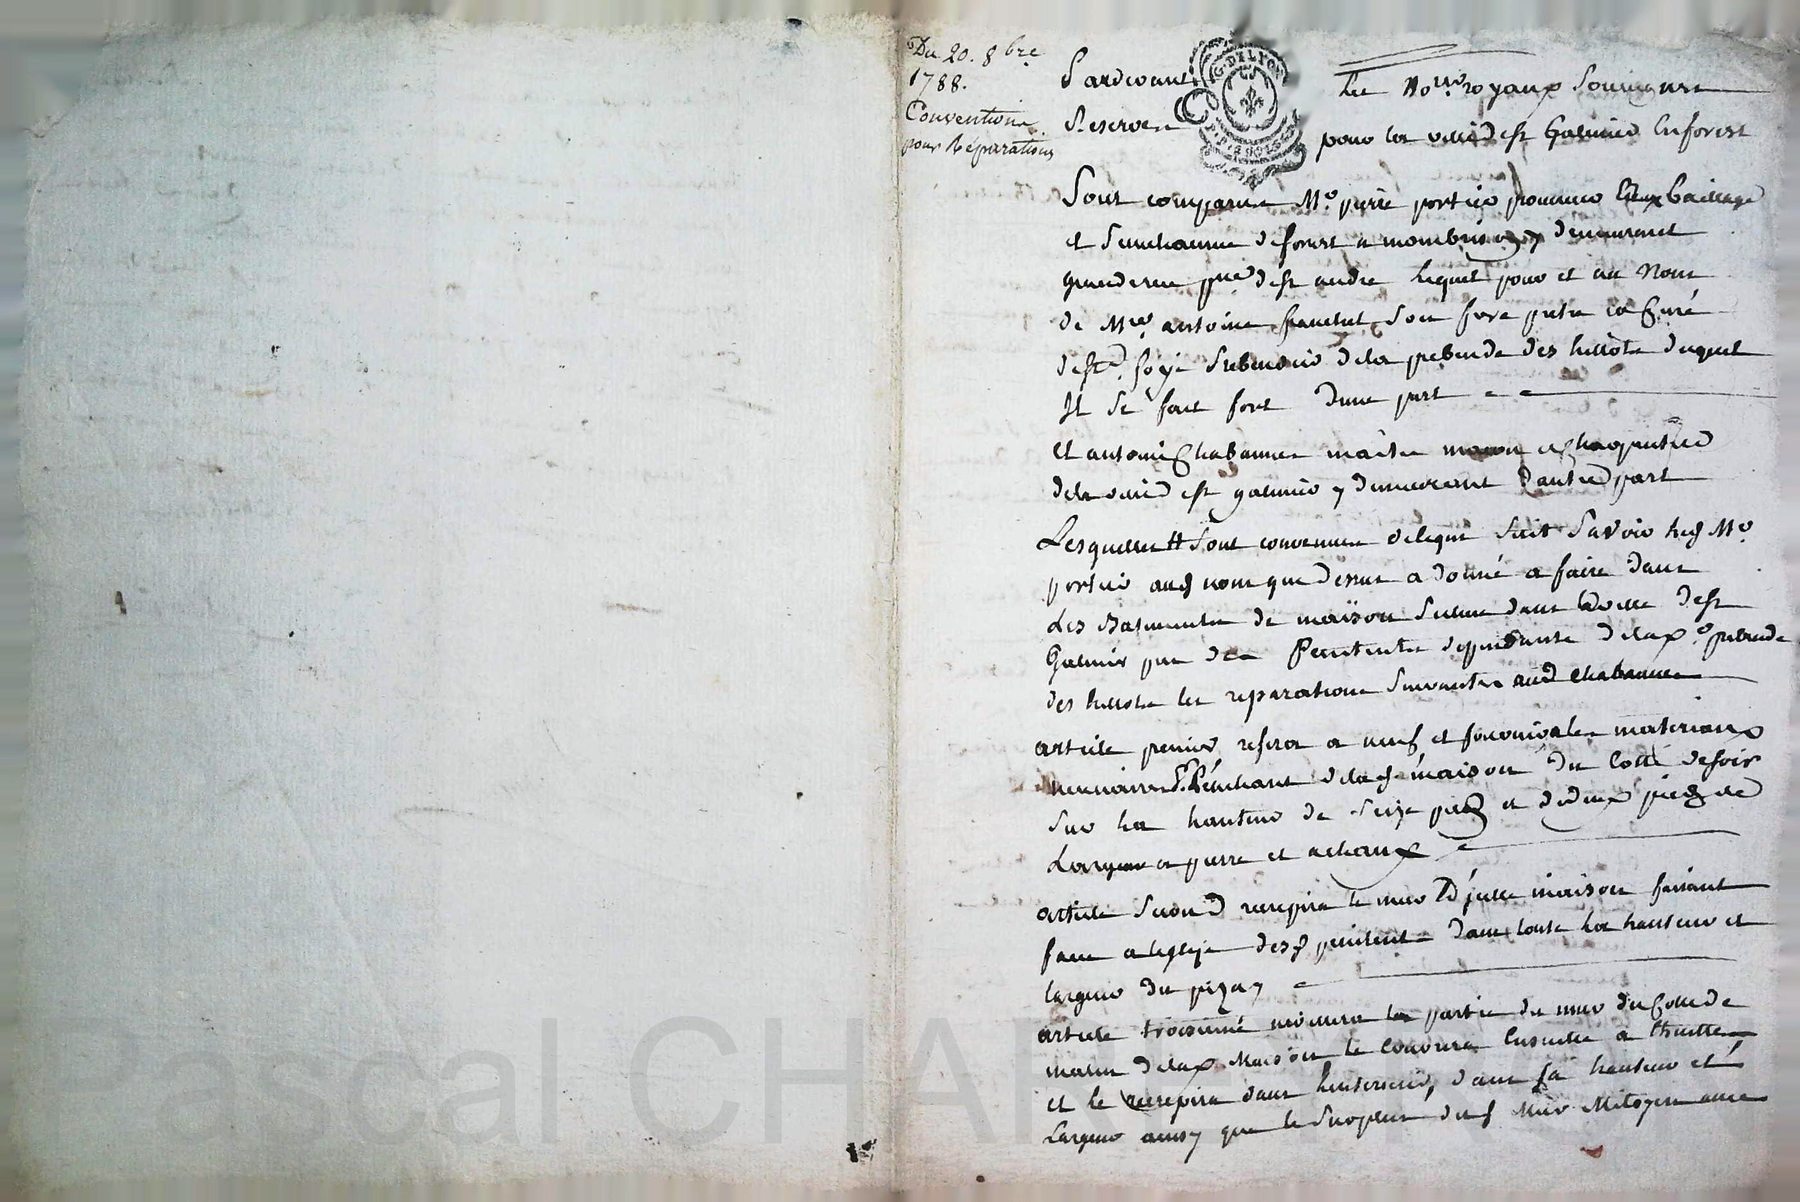 Du 20. 8bre
1788.
Convention
pour Réparations
G. D. LYON
Pardevant Les Nores royaux soussignés
Reservés pour la ville de st Galmier en forest
Sont comparus Me pierre portier procureur baillage
et senechaussée de forest a montbrison y demeurant
grande rue psse de st andré lequel pour et au nom
de Mre antoine son frere pretre et Curé
de ste foye prebendier de la prebende des duquel
Il se fait fort d'une part
et antoine Chabanne maitre maçon et Charpentier
de la ville de st galmier y demeurant d'autre part
Lesquelles sont convenues de ce que suit savoir led Me
portier aud nom que dessus a donné a faire dans
Les Batiments de maison scitué dans la ville de st
Galmier rue des Penitents dependante de lad prebende
des les reparations suivantes aud Chabanne
article premier refera a neuf et fournira les materiaux
necessaires de lad maison du Cotté de soir
sur la hauteur de seize pieds et de deux pieds de
Largeur a pierre et a chaux
article second recrepira le mur d'icelle maison faisant
face a l'eglise desd penitents dans toute la hauteur et
largeur du pizay
article troisieme la partie du mur du Cotté de
matin de lad Maison le Couvrira ensuitte a thuille
et le recrepira dans l'interieur, dans sa hauteur et
Largeur ainsy que le surplus dud Mur Mitoyen avec
Pascal CHA